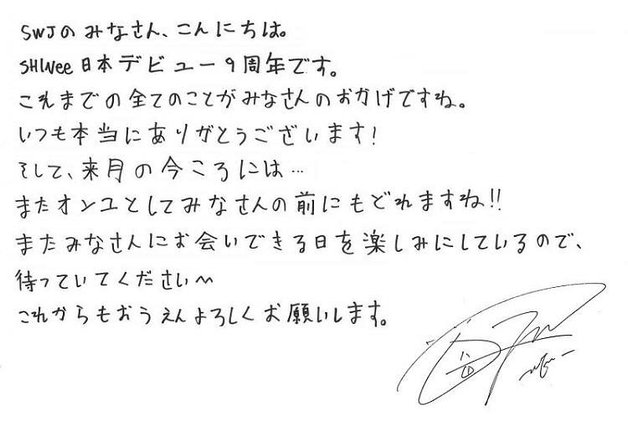 SWJのみなさん、こんにちは。
SHINee日本デビュー9周年です。
これまでの全てのことがみなさんのおかげですね。
いつも本当にありがとうございます!
そして、来月の今ころには…
またオンユとしてみなさんの前にもどれますね!!
またみなさんにお会いできる日を楽しみにしているので、
待っていてください〜
これからもおうえんよろしくお願いします。